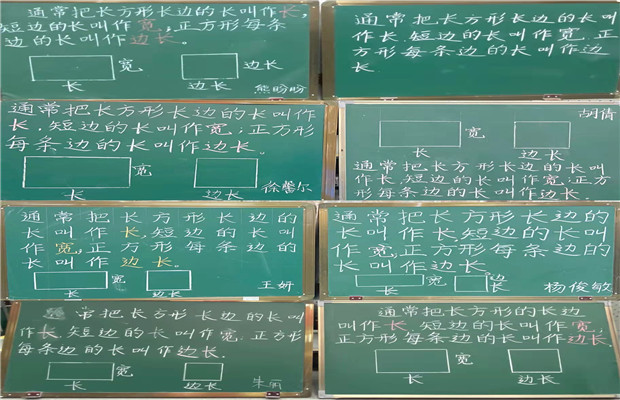 通常把长方形长边的长叫作长,
短边的长叫作宽,正方形每条
边的长叫作边长。
宽
边长
长
熊盼盼
通常把长方形长边的长叫
作长,短边的长叫作宽,正
方形每条边的长叫作边
长.
通常把长方形长边的长叫作
长,短边的长叫作宽;正方形
每条边的长叫作边长。
宽
长
边长
胡倩
宽
长
边长
通常把长方形长边的长叫
作长,短边的长叫作宽,正方
形每条边的长叫作边长.
通常把长方形长边的
长叫作长,短边的长叫
作宽,正方形每条边的
长叫作边长。
宽
长
边长
王妍
通常把长方形长边的
长叫作长,短边的长叫
作宽,正方形每条边的
长叫作边长.
宽
边长
长
杨俊敏
常把长方形长边的长叫
作长,短边的长叫作宽,正方形
每条边的长叫作边长.
宽
长
边长
通常把长方形的长边
叫作长,短边的长叫作宽,
正方形每条边的长叫作边长.
宽
长
边长